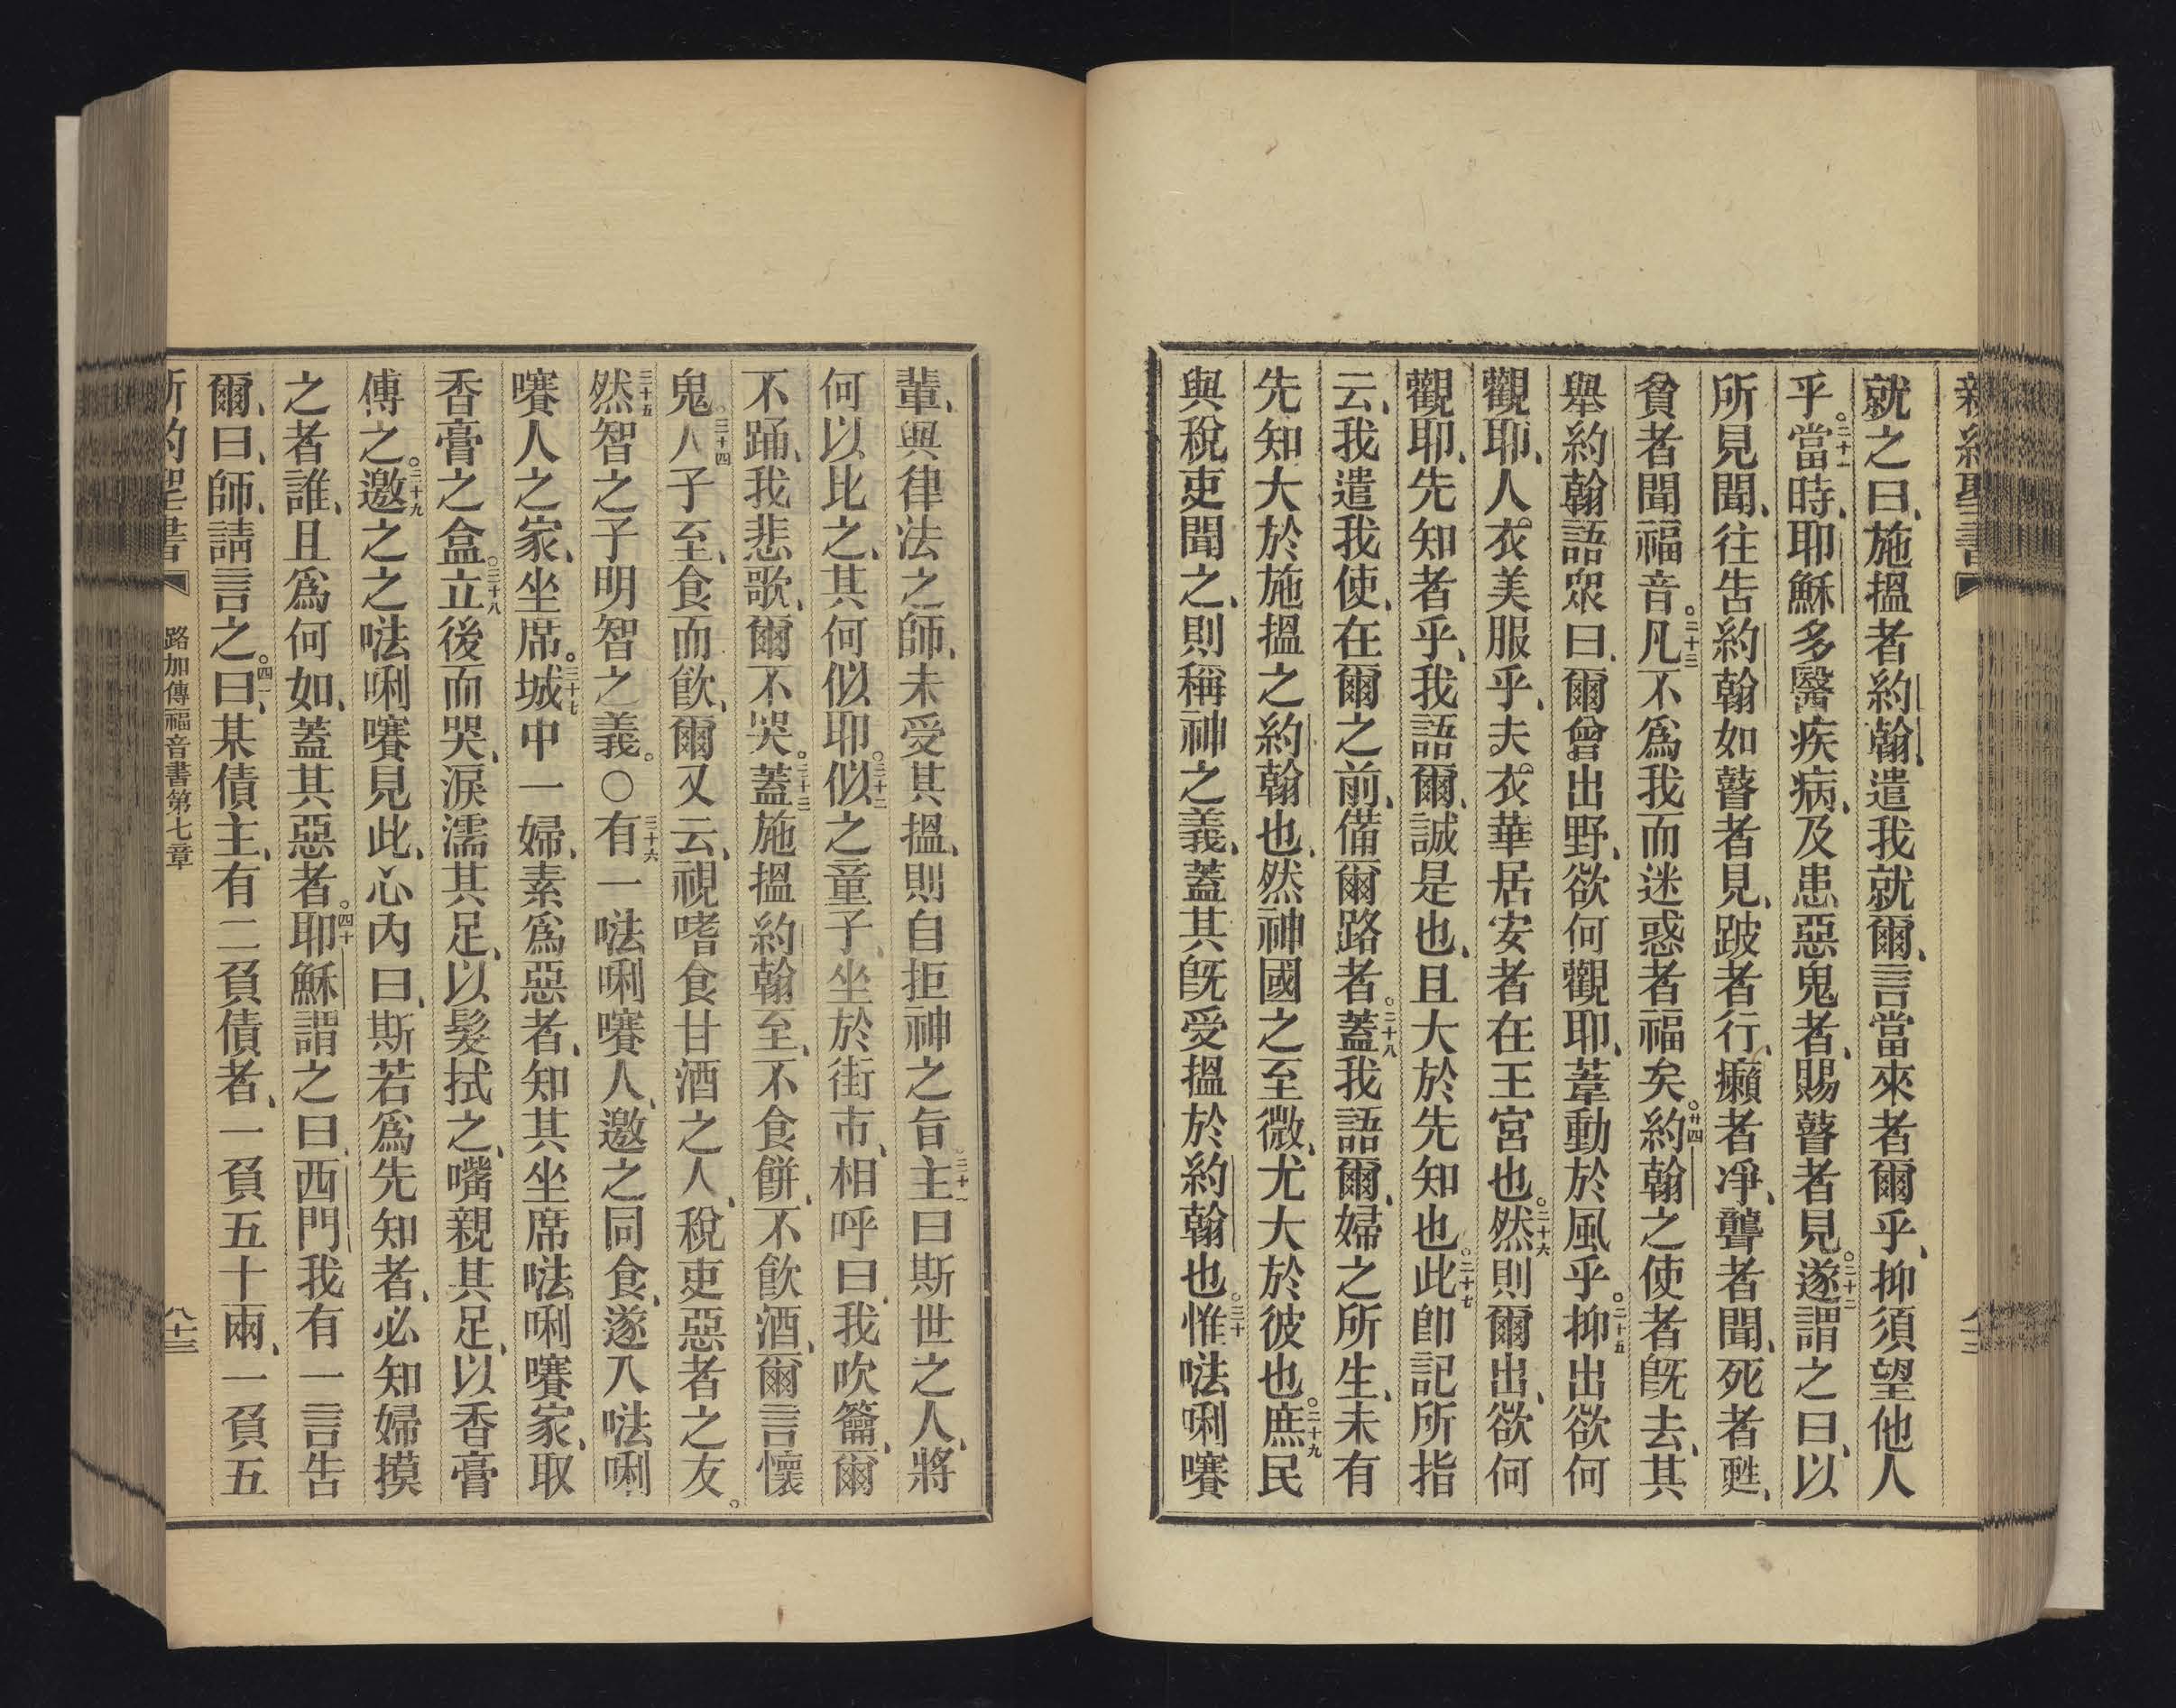 新約聖書
就之曰、施搵者約翰、遣我就爾、言當來者爾乎、抑須望他人
乎。二十一當時、耶穌多醫疾病、及患惡鬼者、賜瞽者見。二十二遂謂之曰、以
所見聞、往吿約翰如瞽者見、跛者行、癩者淨、聾者聞、死者甦、
貧者聞福音。二十三凡不爲我而迷惑者福矣。廿四約翰之使者旣去、其
舉約翰語眾曰、爾曾出野、欲何觀耶、葦動於風乎。二十五抑出欲何
觀耶、人衣美服乎、夫衣華居安者在王宮也。二十六然則爾出、欲何
觀耶、先知者乎、我語爾、誠是也、且大於先知也。二十七此卽記所指
云、我遣我使、在爾之前、備爾路者。二十八蓋我語爾、婦之所生、未有
先知大於施搵之約翰也、然神國之至微、尤大於彼也。二十九庶民
與稅吏聞之、則稱神之義、蓋其旣受搵於約翰也。三十惟㳒唎㘔
輩、與律法之師、未受其搵、則自拒神之旨。三十一主曰斯世之人、將
何以比之、其何似耶。三十二似之童子、坐於街市、相呼曰、我吹籥、爾
不踊、我悲歌、爾不哭。三十三蓋施搵約翰至、不食餅、不飮酒、爾言懷
鬼。三十四人子至、食而飮、爾又云、視嗜食甘酒之人、稅吏惡者之友。
三十五然智之子明智之義。○三十六有一㳒唎㘔人、邀之同食、遂入㳒唎
㘔人之家、坐席。三十七城中一婦、素爲惡者、知其坐席㳒唎㘔家、取
香膏之盒。三十八立後而哭、淚濡其足、以髮拭之、嘴親其足、以香膏
傅之。三十九邀之之㳒唎㘔見此、心內曰、斯若爲先知者、必知婦摸
之者誰、且爲何如、蓋其惡者。四十耶穌謂之曰、西門我有一言吿
爾、曰、師、請言之。四一曰、某債主、有二負債者、一負五十兩、一負五
新約聖書 路加傳福音書第七章 八十三